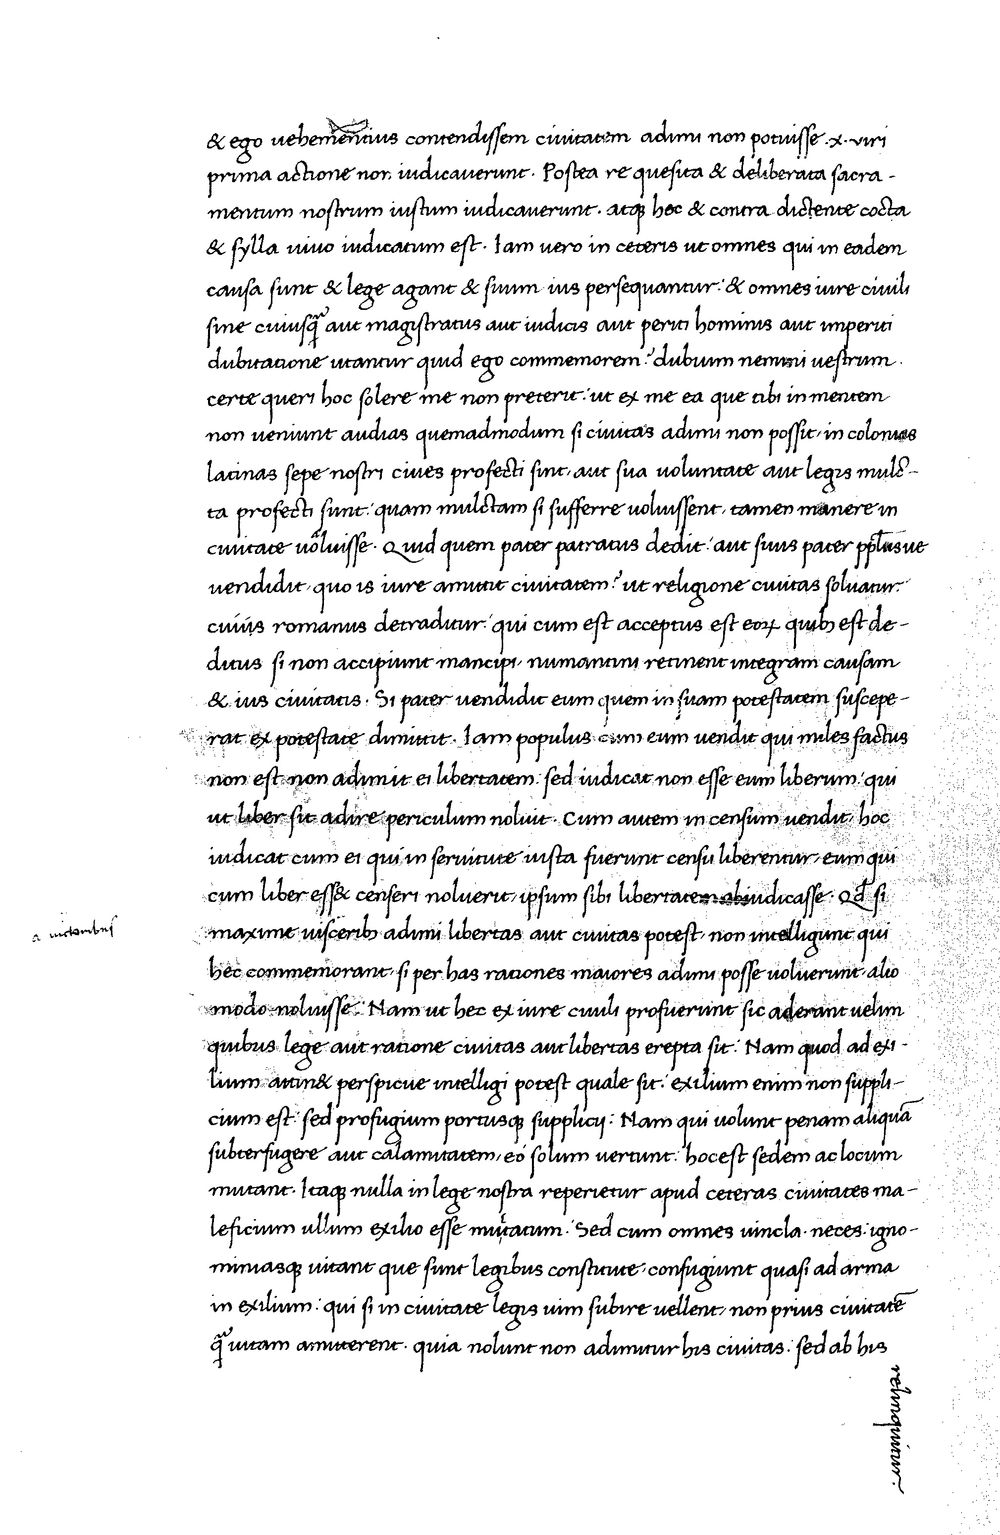 & ego uehementius contendissem ciuitatem adimi non potuisse .x. viri
prima actione non iudicauerunt. Postea re quesita & deliberata sacra-
mentum nostrum iustum iudicauerunt. atqꝫ hec & contra dicente cocta
& sylla uiuo iudicatum est. Iam uero in ceteris ut omnes qui in eadem
causa sunt & lege agant & suum ius persequantur: & omnes iure ciuili
sine cuiusꝗ̃ aut magistratus aut iudicis aut periti hominis aut imperiti
dubitatione utantur quid ego commemorem? dubium nemini uestrum.
certe queri hoc solere me non preterit: ut ex me ea que tibi in mentem
non ueniunt audias quemadmodum si ciuitas adimi non possit, in colonias
latinas sepe nostri ciues profecti sint, aut sua uoluntate aut legis mulc-
ta profecti sunt: quam mulctam si sufferre uoluissent, tamen manere in
ciuitate uoluisse. Quid quem pater patratus dedit: aut suus pater pplusue
uendidit, quo is iure amittit ciuitatem? ut religione ciuitas soluatur:
ciuis romanus detraditur: qui cum est acceptus est eoꝝ quibꝫ est de-
ditus si non accipiunt mancipi, numantini retinent integram causam
& ius ciuitatis. Si pater uendidit eum quem in suam potestatem suscepe-
rat ex potestate dimittit. Iam populus cum eum uendit qui miles factus
non est: non adimit ei libertatem: sed iudicat non esse eum liberum: qui
ut liber sit adire periculum noluit. Cum autem in censum uendit, hoc
iudicat cum ei qui in seruitute iusta fuerunt censu liberentur, eum qui
cum liber ess& censeri noluerit, ipsum sibi libertatem abiudicasse. Qđ si
maxime uisceribꝫ adimi libertas aut ciuitas potest, non intelligunt qui
hec commemorant, si per has rationes maiores adimi posse uoluerunt, alio
modo noluisse: Nam ut hec ex iure ciuili profuerunt sic aderant uelim
quibus lege aut ratione ciuitas aut libertas erepta sit: Nam quod ad exi-
lium attin& perspicue intelligi potest quale sit: exilium enim non suppli-
cium est: sed profugium portusqꝫ supplicij: Nam qui uolunt penam aliquã
subterfugere aut calamitatem, eo solum uertunt: hoc est sedem ac locum
mutant. Itaqꝫ nulla in lege nostra reperietur apud ceteras ciuitates ma-
leficium ullum exilio esse mutatum: Sed cum omnes uincla. neces: igno-
miniasqꝫ uitant que sunt legibus constitute, confugiunt quasi ad arma
in exilium: qui si in ciuitate legis uim subire uellent, non prius ciuitatẽ
ꝗ̃ uitam amitterent. quia nolunt non adimitur his ciuitas: sed ab his
relinquitur: